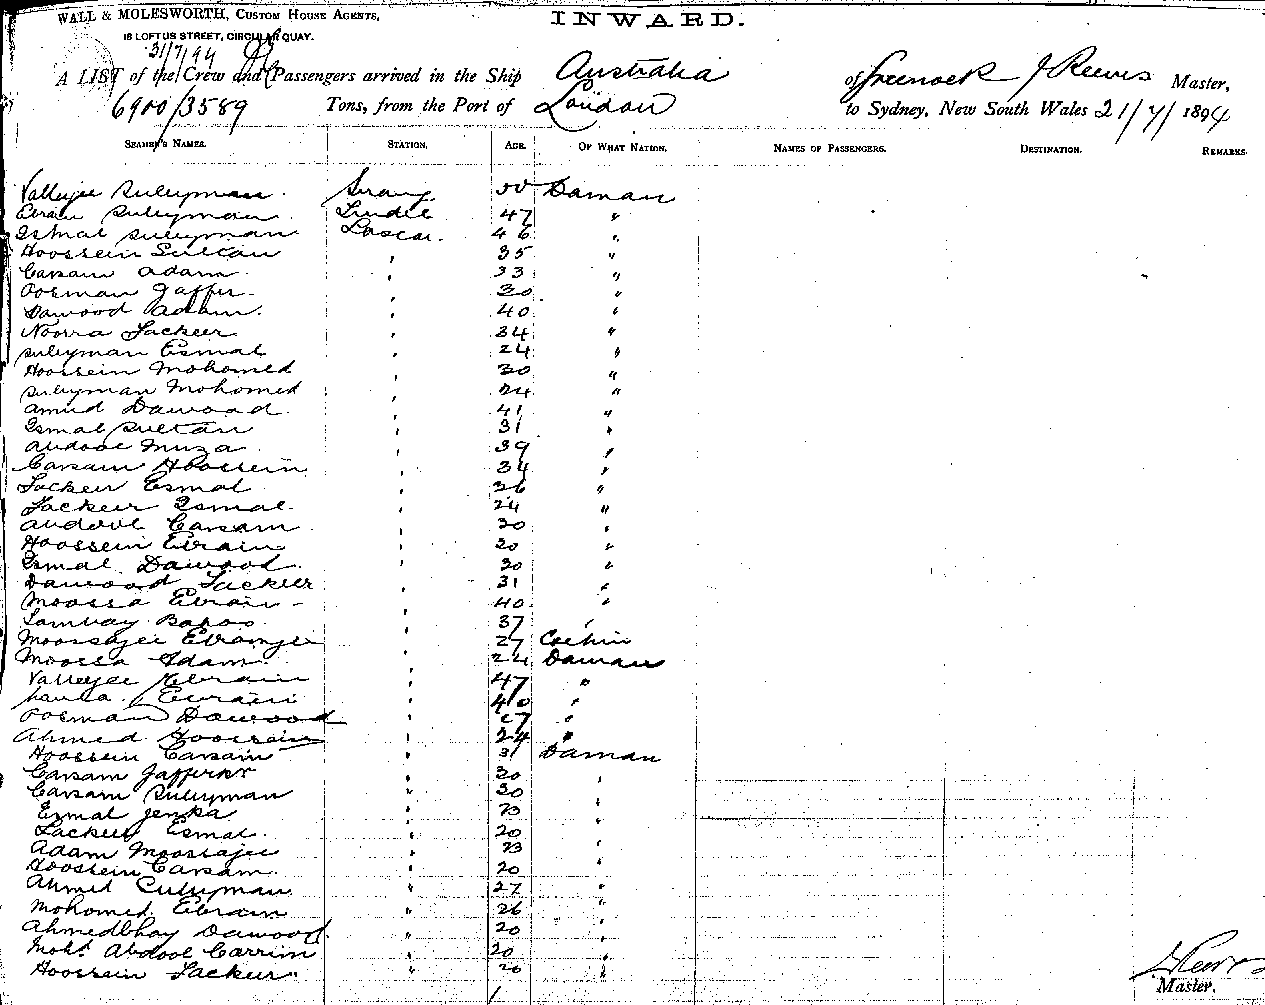 WALL & MOLESWORTH, CUSTOM HOUSE AGENTS,
INWARD.
18 LOFTUS STREET, CIRCULAR QUAY.
31/7/94
A LIST of the Crew and Passengers arrived in the Ship Australia of Greenock J Reeves Master,
6900/3589 Tons, from the Port of London to Sydney, New South Wales 21/7/1894
SEAMEN'S NAMES. STATION. AGE. OF WHAT NATION. NAMES OF PASSENGERS. DESTINATION. REMARKS.
Vallejee Suleyman Serang 50 Daman
Ebrain Suleyman Tindle 47 "
Esmal Suleyman Lascar 46 "
Hoossein Sultan " 35 "
Carsam Adam " 33 "
Oosman Jaffer " 30 "
Dawood Adam " 40 "
Noora Jackeer " 34 "
Suleyman Esmal " 24 "
Hoossein Mohomed " 30 "
Suleyman Mohomed " 24 "
Amed Dawood " 41 "
Esmal Sultan " 31 "
Abdool Muza " 39 "
Carsam Hoossein " 34 "
Jackeer Esmal " 26 "
Jackeer Esmal " 24 "
Abdool Carsam " 30 "
Hoossein Ebrain " 20 "
Esmal Dawood " 30 "
Dawood Jackeer " 31 "
Moossa Ebrain " 40 "
" 37 "
Moosajee " 27 Cochin
Moossa Adam " 24 Daman
Vallejee Ebrain " 47 "
Ebrain " 40 "
Oosman Dawood " 27 "
Ahmed Hoossein " 24 "
Hoossein Carsam " 31 Daman
Carsam " 20 "
Carsam Suleyman " 30 "
Esmal " 23 "
Jackeer Esmal " 20 "
Adam Moosajee " 23 "
Hoossein Carsam " 20 "
Ahmed Suleyman " 27 "
Mohomed Ebrain " 26 "
Ahmedbhay Dawood " 20 "
Mohd Abdool Carrim " 20 "
Hoossein Jackeer " 20 "
J Reeves
Master.